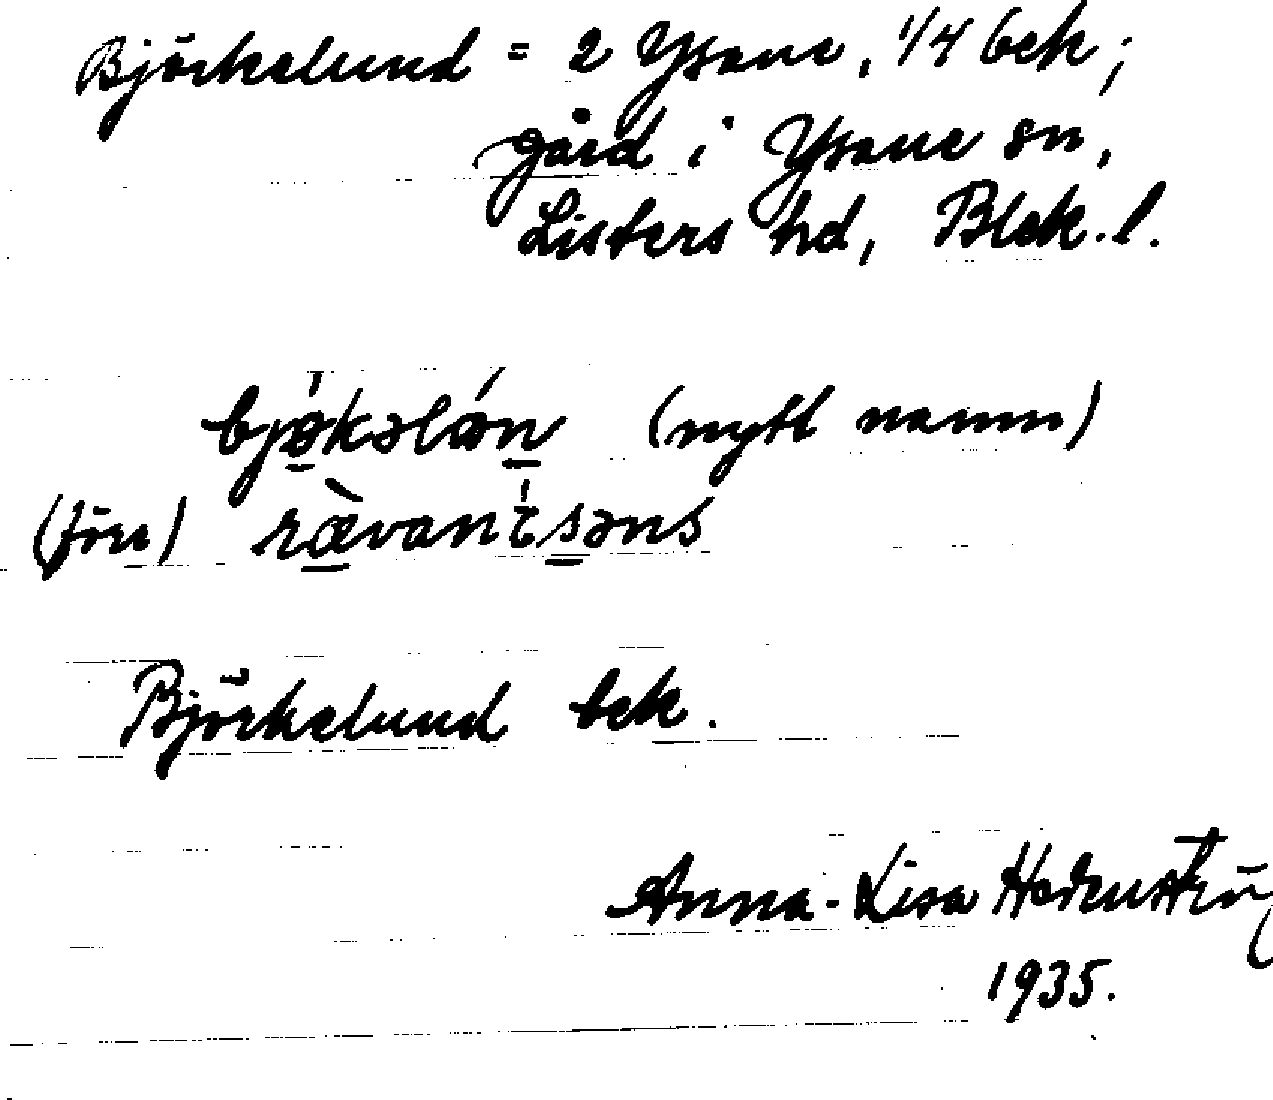 Björkelund = 2 Ysane, 1/4 bek;
gård i Ysane sn,
Listers hd, Blek. l.
bjǿ̱kəlǿn̲ (nytt namn)
(förr)
Björkelund bek.
Anna-Lisa
1935.